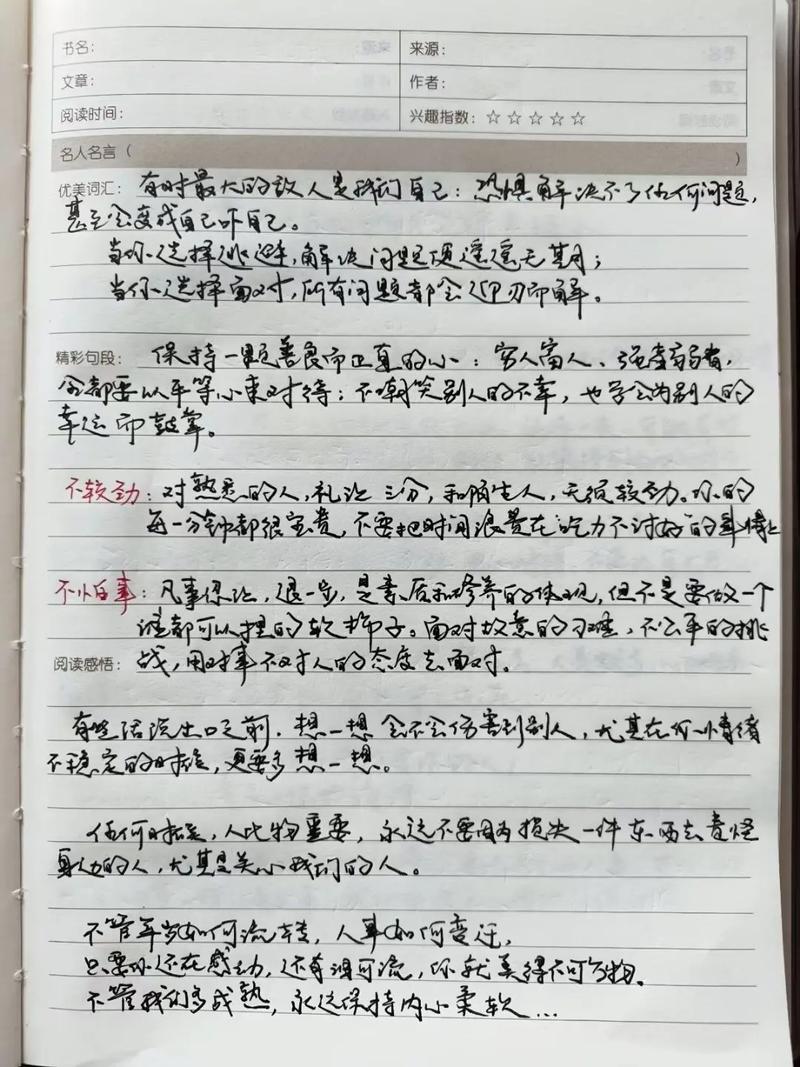 书名： 来源：
文章： 作者：
阅读时间： 兴趣指数：☆☆☆☆☆
名人名言（ ）
优美词汇：有时最大的敌人是我们自己：恐惧解决不了任何问题，
甚至会变成自己吓自己。
当你选择逃避，解决问题便遥遥无期；
当你选择面对，所有问题都会迎刃而解。
精彩句段：保持一颗善良而正直的心：穷人富人、强者弱者，
全都要以平等心来对待；不嘲笑别人的不幸，也学会为别人的
幸运而鼓掌。
不较劲：对熟悉的人，礼让三分，和陌生人，无须较劲。你的
每一分钟都很宝贵，不要把时间浪费在"吃力不讨好"的事情上
不怕事：凡事谦让，退一步，是素质和修养的体现，但不是要做一个
谁都可以捏的软柿子。面对故意的刁难，不公平的挑
阅读感悟：战，用对事不对人的态度去面对。
有些话说出口之前，想一想会不会伤害到别人，尤其在你情绪
不稳定的时候，更要多想一想。
任何时候，人比物重要，永远不要因为损失一件东西去责怪
身边的人，尤其是关心我们的人。
不管年岁如何流转，人事如何变迁，
只要你还在感动，还有泪可流，你就美得不可方物。
不管我们多成熟，永远保持内心柔软…